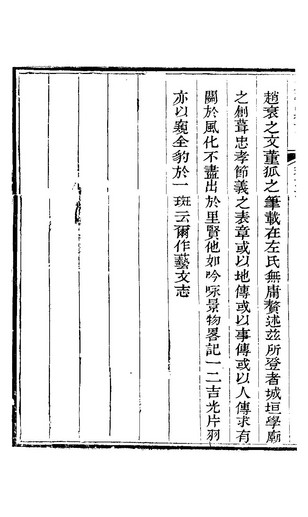 趙衰之文董狐之筆載在左氏無庸贅述茲所登者城垣學廟
之剏葺忠孝節義之表章或以地傳或以事傳或以人傳求有
關於風化不盡出於里賢他如吟咏景物畧記一二吉光片羽
亦以窺全豹於一班云爾作藝文志